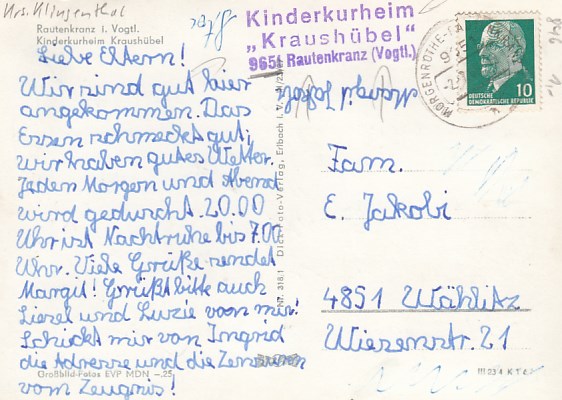 Krs. Klingenthal
Rautenkranz i. Vogtl.
Kinderkurheim Kraushübel
Liebe Eltern!
Wir sind gut hier
angekommen. Das
Essen schmeckt gut,
wir haben gutes Wetter.
Jeden Morgen und Abend
wird geduscht. 20.00
Uhr ist Nachtruhe bis 7.00
Uhr. Viele Grüße sendet
Margit! Grüßt bitte auch
Liesel und Luzie von mir!
Schickt mir von Ingrid
die Adresse und die Zensuren
vom Zeugnis!
Großbild-Fotos EVP MDN -.25
Kinderkurheim
„Kraushübel“
9651 Rautenkranz (Vogtl.)
Margit Jakobi
DEUTSCHE
DEMOKRATISCHE REPUBLIK
10
Fam.
E. Jakobi
4851 Wählitz
Wiesenstr. 21
III 23 4